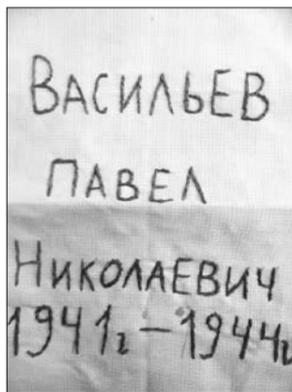 ВАСИЛЬЕВ
ПАВЕЛ
НИКОЛАЕВИЧ
1941г – 1944г